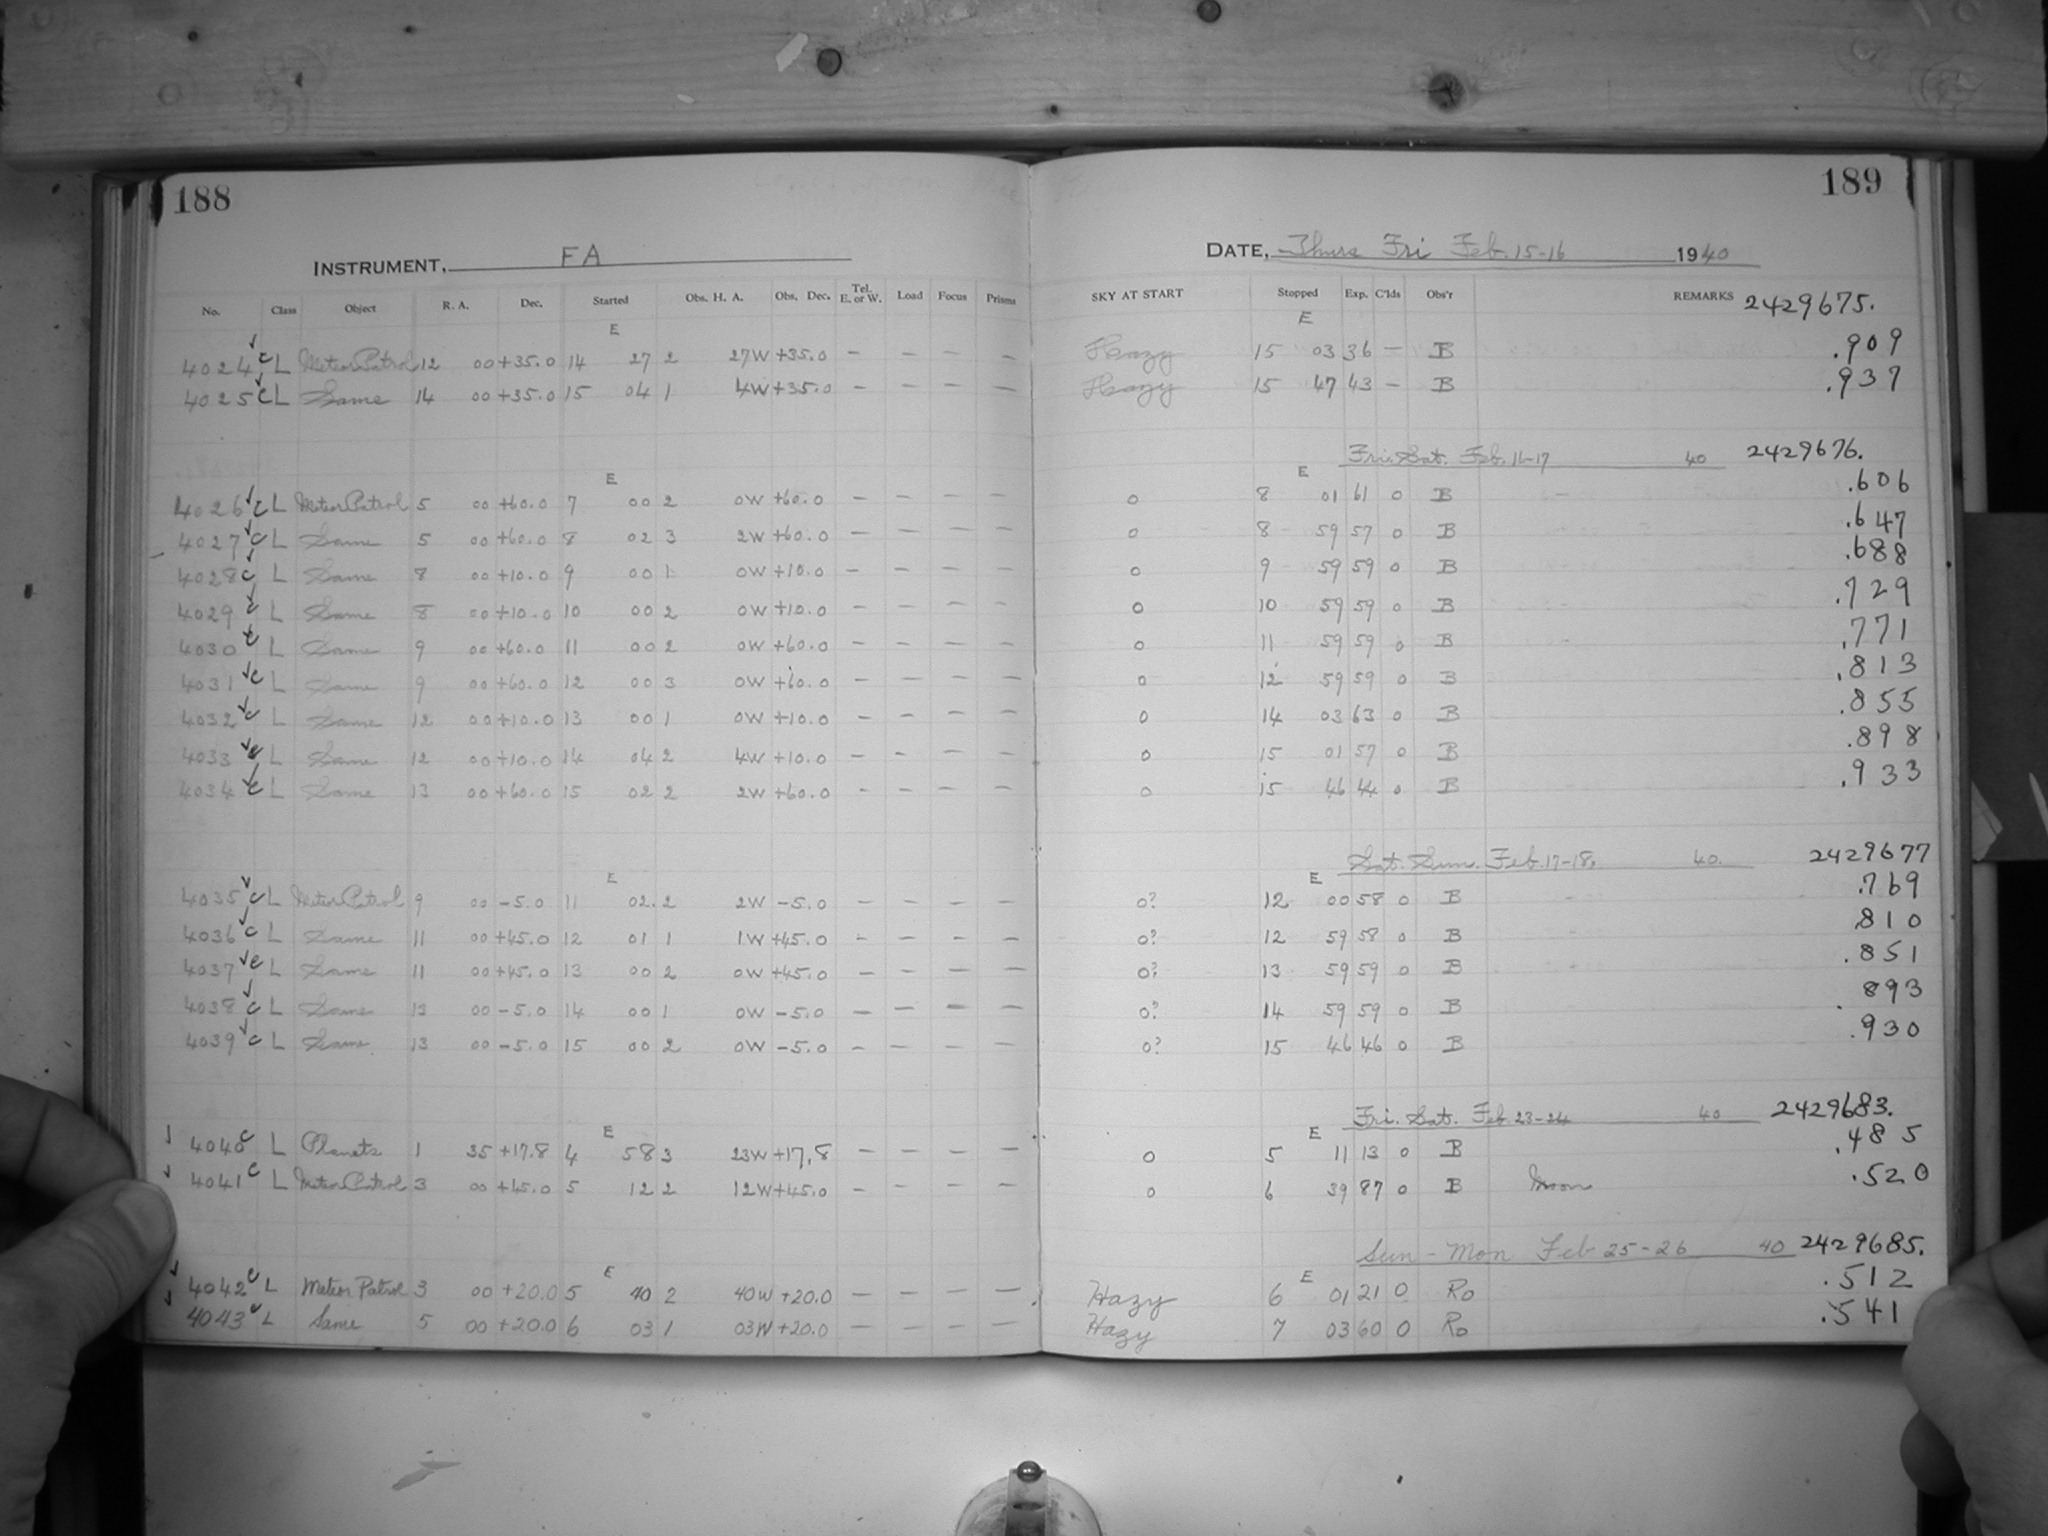 188
189
INSTRUMENT, FA
DATE, Thurs Fri Feb. 15-16 1940
No. Class Object R. A. Dec. Started Obs. H. A. Obs. Dec. Tel. E. or W. Load Focus Prisms SKY AT START Stopped Exp. C'lds Obs'r REMARKS 2429675.
E E
4024 c L Meteor Patrol 12 00 +35.0 14 27 2 27W +35.0 — — — — Hazy 15 03 36 — B .909
4025 c L Same 14 00 +35.0 15 04 1 4W +35.0 — — — — Hazy 15 47 43 — B .937
Fri. Sat. Feb. 16-17 40 2429676.
E E
4026 c L Meteor Patrol 5 00 +60.0 7 00 2 0W +60.0 — — — — 0 8 01 61 0 B .606
4027 c L Same 5 00 +60.0 8 02 3 2W +60.0 — — — — 0 8 59 57 0 B .647
4028 c L Same 8 00 +10.0 9 00 1 0W +10.0 — — — — 0 9 59 59 0 B .688
4029 c L Same 8 00 +10.0 10 00 2 0W +10.0 — — — — 0 10 59 59 0 B .729
4030 c L Same 9 00 +60.0 11 00 2 0W +60.0 — — — — 0 11 59 59 0 B .771
4031 c L Same 9 00 +60.0 12 00 3 0W +60.0 — — — — 0 12 59 59 0 B .813
4032 c L Same 12 00 +10.0 13 00 1 0W +10.0 — — — — 0 14 03 63 0 B .855
4033 c L Same 12 00 +10.0 14 04 2 4W +10.0 — — — — 0 15 01 57 0 B .898
4034 c L Same 13 00 +60.0 15 02 2 2W +60.0 — — — — 0 15 46 44 0 B .933
Sat. Sun. Feb. 17-18, 40. 2429677
E E
4035 c L Meteor Patrol 9 00 -5.0 11 02.2 2W -5.0 — — — — 0? 12 00 58 0 B .769
4036 c L Same 11 00 +45.0 12 01 1 1W +45.0 — — — — 0? 12 59 58 0 B .810
4037 c L Same 11 00 +45.0 13 00 2 0W +45.0 — — — — 0? 13 59 59 0 B .851
4038 c L Same 13 00 -5.0 14 00 1 0W -5.0 — — — — 0? 14 59 59 0 B .893
4039 c L Same 13 00 -5.0 15 00 2 0W -5.0 — — — — 0? 15 46 46 0 B .930
Fri. Sat. Feb 23-24 40 2429683.
E E
4040 c L Planets 1 35 +17.8 4 58 3 23W +17.8 — — — — 0 5 11 13 0 B .485
4041 c L Meteor Patrol 3 00 +45.0 5 12 2 12W +45.0 — — — — 0 6 39 87 0 B Moon .520
Sun - Mon Feb 25-26 40 2429685.
E E
4042 c L Meteor Patrol 3 00 +20.0 5 40 2 40W +20.0 — — — — Hazy 6 01 21 0 Ro .512
4043 c L Same 5 00 +20.0 6 03 1 03W +20.0 — — — — Hazy 7 03 60 0 Ro .541